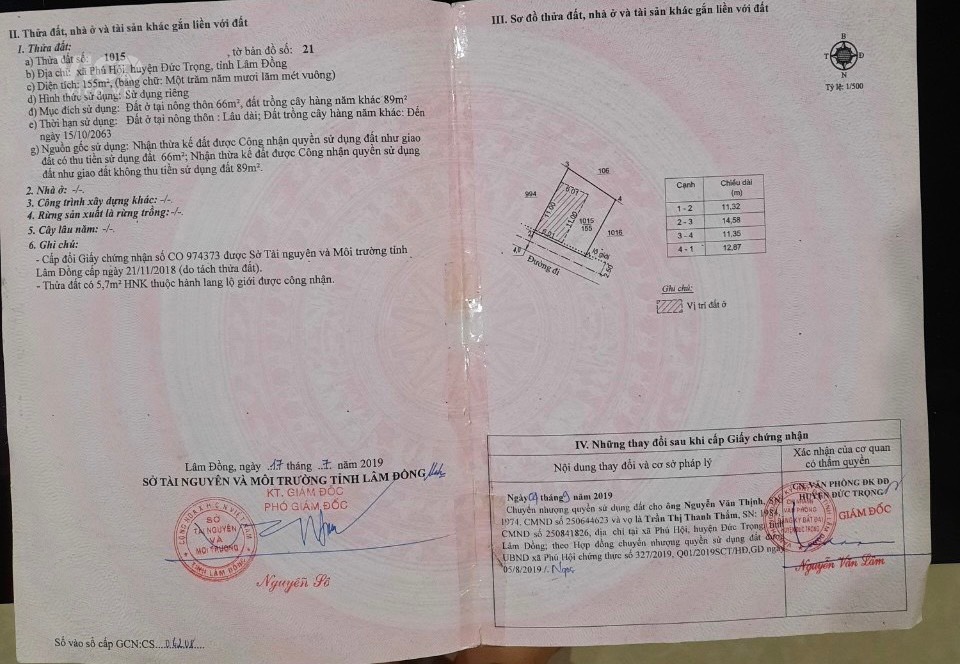 II. Thửa đất, nhà ở và tài sản khác gắn liền với đất
1. Thửa đất:
a) Thửa đất số: 1015 , tờ bản đồ số: 21
b) Địa chỉ: xã Phú Hội, huyện Đức Trọng, tỉnh Lâm Đồng
c) Diện tích: 155m², (bằng chữ: Một trăm năm mươi lăm mét vuông)
d) Hình thức sử dụng: Sử dụng riêng
đ) Mục đích sử dụng: Đất ở tại nông thôn 66m², đất trồng cây hàng năm khác 89m²
e) Thời hạn sử dụng: Đất ở tại nông thôn : Lâu dài; Đất trồng cây hàng năm khác: Đến
ngày 15/10/2063
g) Nguồn gốc sử dụng: Nhận thừa kế đất được Công nhận quyền sử dụng đất như giao
đất có thu tiền sử dụng đất 66m²; Nhận thừa kế đất được Công nhận quyền sử dụng
đất như giao đất không thu tiền sử dụng đất 89m².
2. Nhà ở: -/-.
3. Công trình xây dựng khác: -/-.
4. Rừng sản xuất là rừng trồng: -/-.
5. Cây lâu năm: -/-.
6. Ghi chú:
- Cấp đổi Giấy chứng nhận số CO 974373 được Sở Tài nguyên và Môi trường tỉnh
Lâm Đồng cấp ngày 21/11/2018 (do tách thửa đất).
- Thửa đất có 5,7m² HNK thuộc hành lang lộ giới được công nhận.
Lâm Đồng, ngày 17 tháng 7 năm 2019
SỞ TÀI NGUYÊN VÀ MÔI TRƯỜNG TỈNH LÂM ĐỒNG
KT. GIÁM ĐỐC
PHÓ GIÁM ĐỐC
CỘNG HÒA X.H.C.N VIỆT NAM
SỞ
TÀI NGUYÊN
VÀ
MÔI TRƯỜNG
TỈNH LÂM ĐỒNG
Nguyễn Sê
Số vào sổ cấp GCN:CS....06208....
III. Sơ đồ thửa đất, nhà ở và tài sản khác gắn liền với đất
B
T Đ
N
Tỷ lệ: 1/500
3
106
994
6.01
4
11.00
11.00
1015
155
1016
2
6.01
1
lộ giới
4.9
Đường đi
2.50
Cạnh Chiều dài (m)
1 - 2 11,32
2 - 3 14,58
3 - 4 11,35
4 - 1 12,67
Ghi chú:
Vị trí đất ở
IV. Những thay đổi sau khi cấp Giấy chứng nhận
Nội dung thay đổi và cơ sở pháp lý
Xác nhận của cơ quan
có thẩm quyền
Ngày 09 tháng 9 năm 2019
Chuyển nhượng quyền sử dụng đất cho ông Nguyễn Văn Thịnh, SN:
1974, CMND số 250644623 và vợ là Trần Thị Thanh Thắm, SN: 1984,
CMND số 250841826, địa chỉ tại xã Phú Hội, huyện Đức Trọng, tỉnh
Lâm Đồng; theo Hợp đồng chuyển nhượng quyền sử dụng đất được
UBND xã Phú Hội chứng thực số 327/2019, Q01/2019SCT/HĐ,GD ngày
05/8/2019 ./.
CN.VĂN PHÒNG ĐK ĐĐ
HUYỆN ĐỨC TRỌNG
GIÁM ĐỐC
Nguyễn Văn Lâm